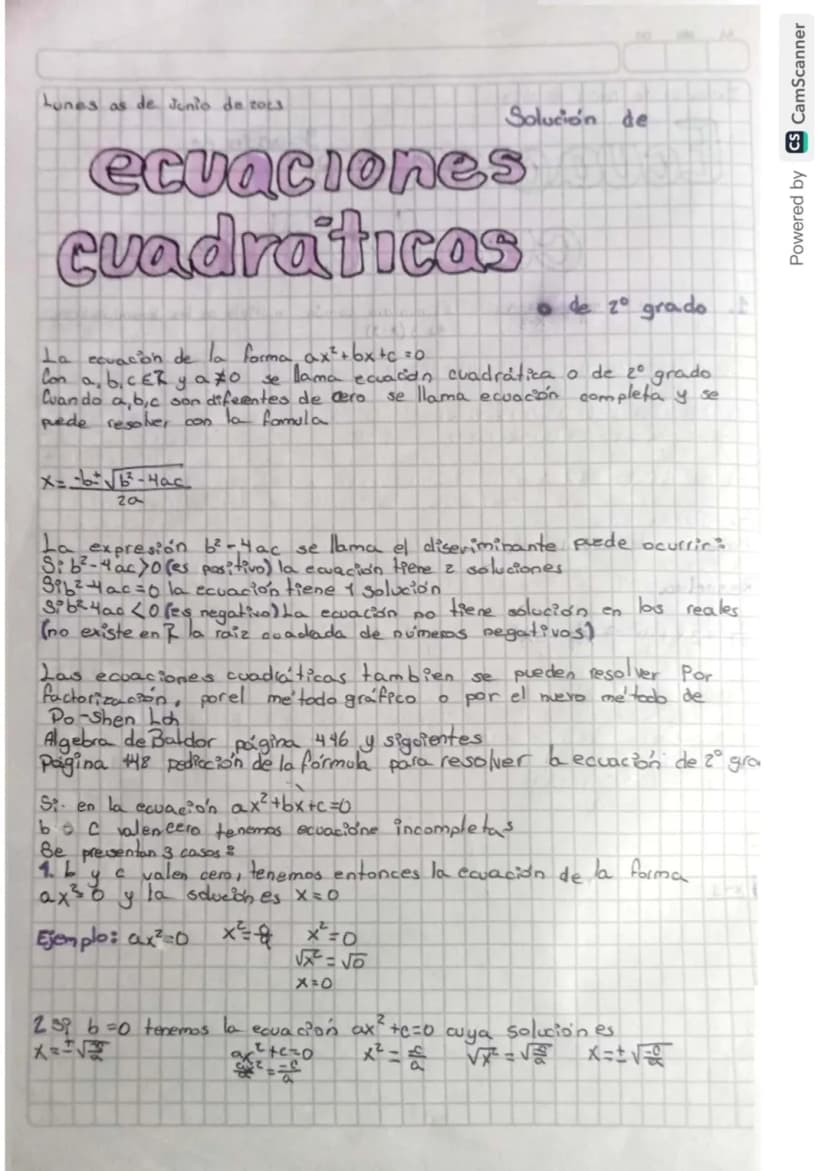 Lunes 05 de Junio de 2023
Solución de
ecuaciones
cuadráticas
o de 2º grado
La ecuación de la forma ax²+bx+c=0
Con a,b,c∈R y a≠0 se llama ecuación cuadrática o de 2º grado
Cuando a,b,c son diferentes de cero se llama ecuación completa y se
puede resolver con la fomula
x= -b±√b²-4ac
2a
La expresión b²-4ac se llama el discriminante puede ocurrir:
Si b²-4ac>0 (es positivo) la ecuación tiene 2 soluciones
Si b²-4ac=0 la ecuación tiene 1 solución
Si b²-4ac <0 (es negativo) La ecuación no tiene solución en los reales
(no existe en R la raiz cuadada de números negativos)
Las ecuaciones cuadráticas tambien se pueden resolver Por
factorización, por el método gráfico o por el nuevo método de
Po-Shen Loh
Algebra de Baldor página 446 y sigientes
Página 448 de la fórmula para resolver la ecuación de 2º gra
Si. en la ecuación ax²+bx+c=0
b o c valen cero tenemos ecuacióne incompletas
Se presentan 3 casos:
1. b y c valen cero, tenemos entonces la ecuación de la forma
ax²=0 y la solución es x=0
Ejemplo: ax²=0 x²= x²=0
√x²=√0
x=0
2 Si b=0 tenemos la ecuación ax²+c=0 cuya solución es
x=±√-c/a ax²+c=0 x²=-c/a √x²=√-c/a x=±√-c/a
x²=-c/a